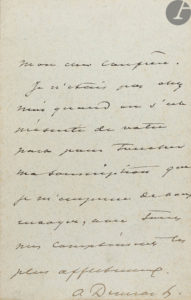 mon cher confrère.
Je n'étais pas chez
moi quand on s'est
présenté de votre
part pour toucher
ma souscription que
je m'empresse de vous
envoyer, avec
mes compliments les
plus affectueux
A